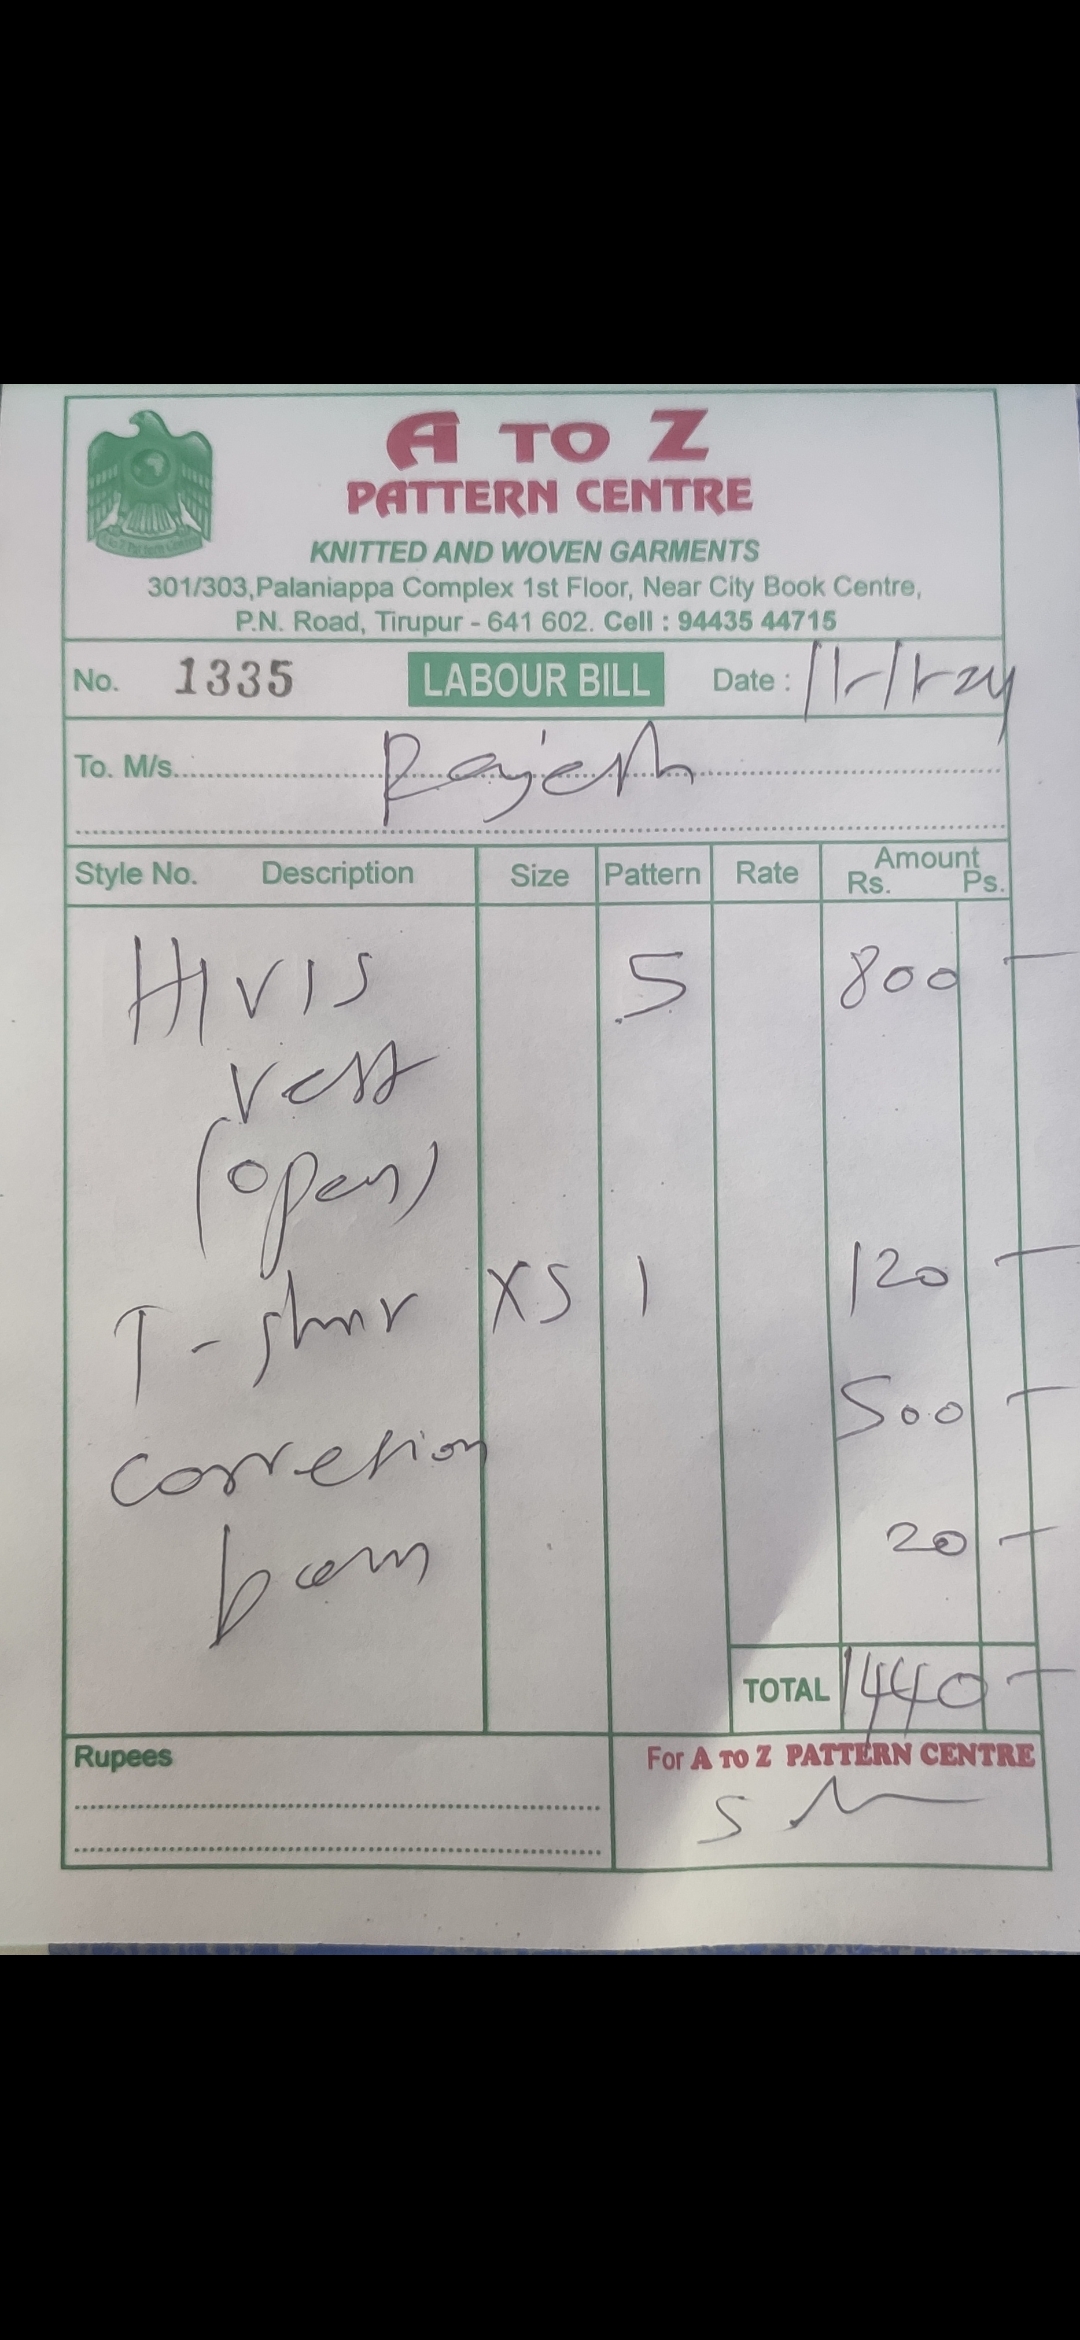 A TO Z
PATTERN CENTRE
KNITTED AND WOVEN GARMENTS
301/303,Palaniappa Complex 1st Floor, Near City Book Centre,
P.N. Road, Tirupur - 641 602. Cell : 94435 44715
No. 1335 LABOUR BILL Date :
To. M/s. Rajesh
Style No. Description Size Pattern Rate Amount
Rs. Ps.
HIVIS 5 800 —
Vest
(open)
T-shirt XS 1 120 —
500 —
corretion
20 —
TOTAL 1440 —
Rupees For A TO Z PATTERN CENTRE